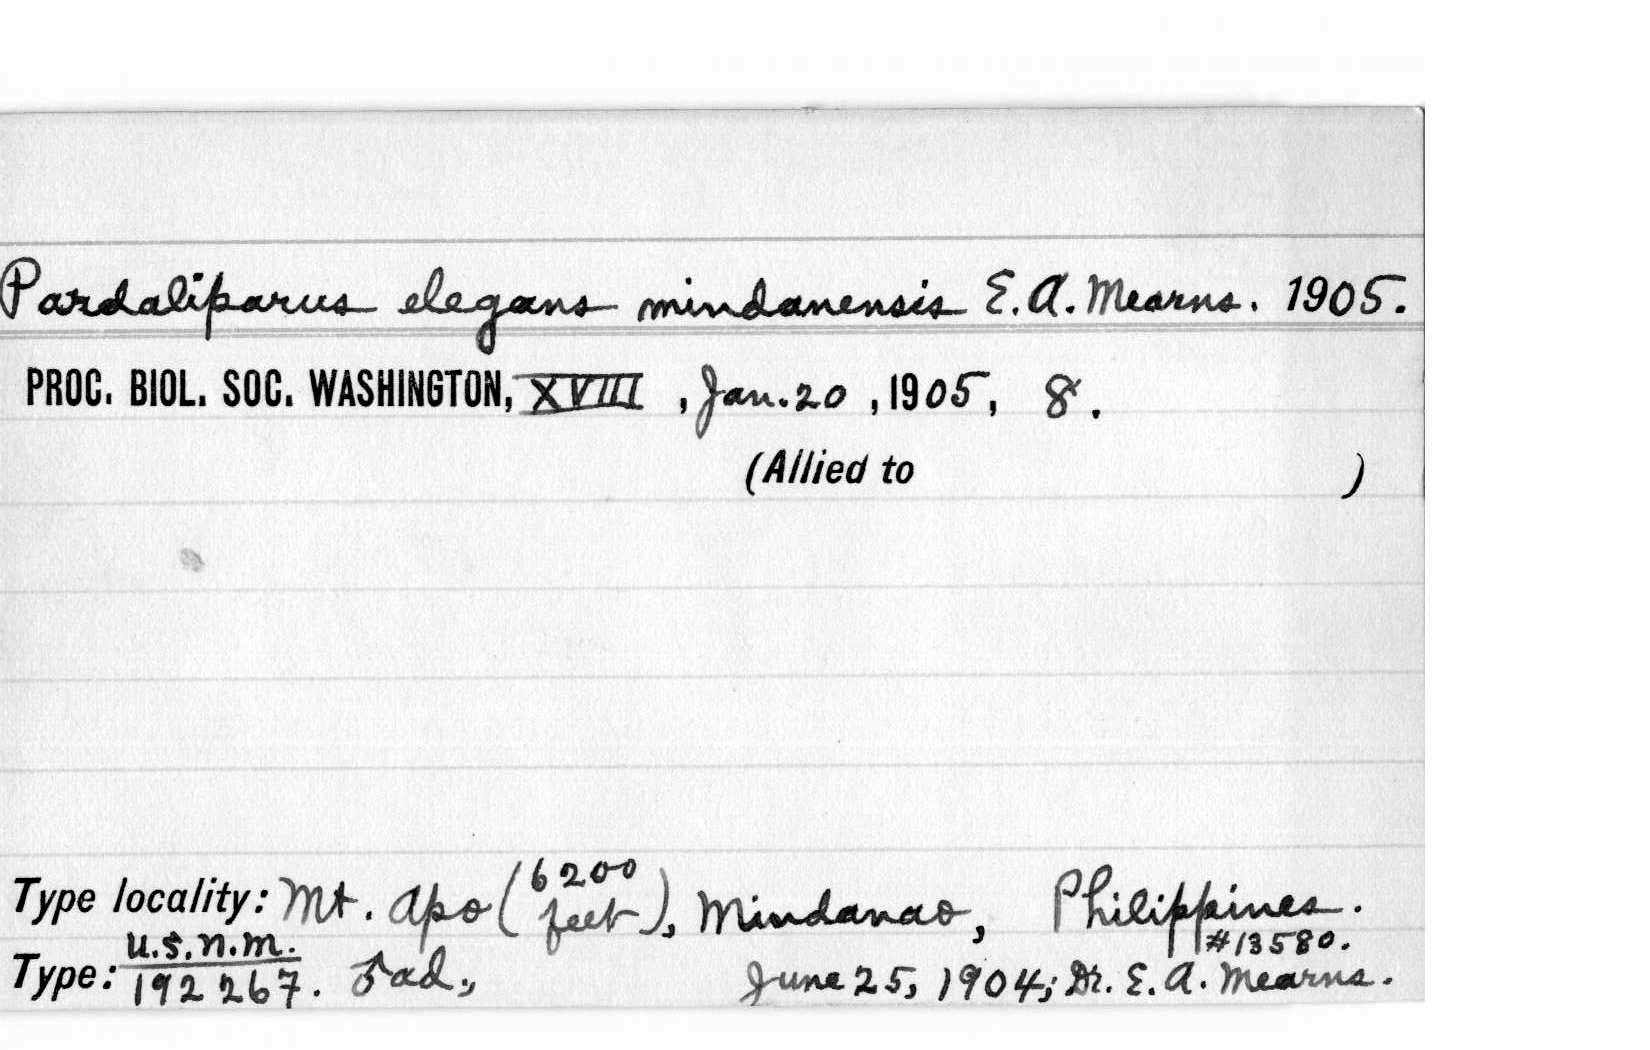 Pardaliparus elegans mindanensis E. A. Mearns. 1905.
PROC. BIOL. SOC. WASHINGTON, XVIII, Jan. 20, 1905, 8.
(Allied to )
Type locality: Mt. Apo (6200 feet), Mindanao, Philippines.
#13580.
Type: U.S.N.M. 192267. ad., June 25, 1904; Dr. E. A. Mearns.